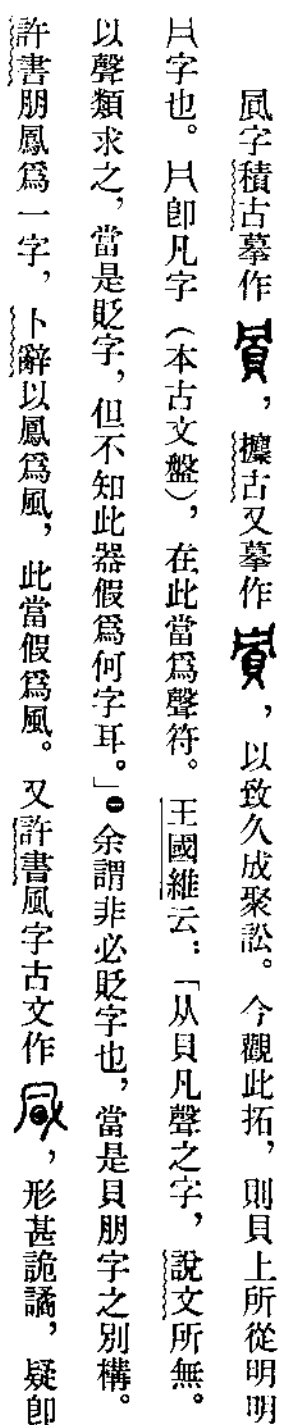 凬字積古摹作，攈古又摹作，以致久成聚訟。今觀此拓，則貝上所從明明
𠔼字也。𠔼卽凡字（本古文盤），在此當爲聲符。王國維云：「从貝凡聲之字，說文所無。
以聲類求之，當是貶字，但不知此器假爲何字耳。」㊀余謂非必貶字也，當是貝朋字之別構。
許書朋鳳爲一字，卜辭以鳳爲風，此當假爲風。又許書風字古文作，形甚詭譎，疑卽